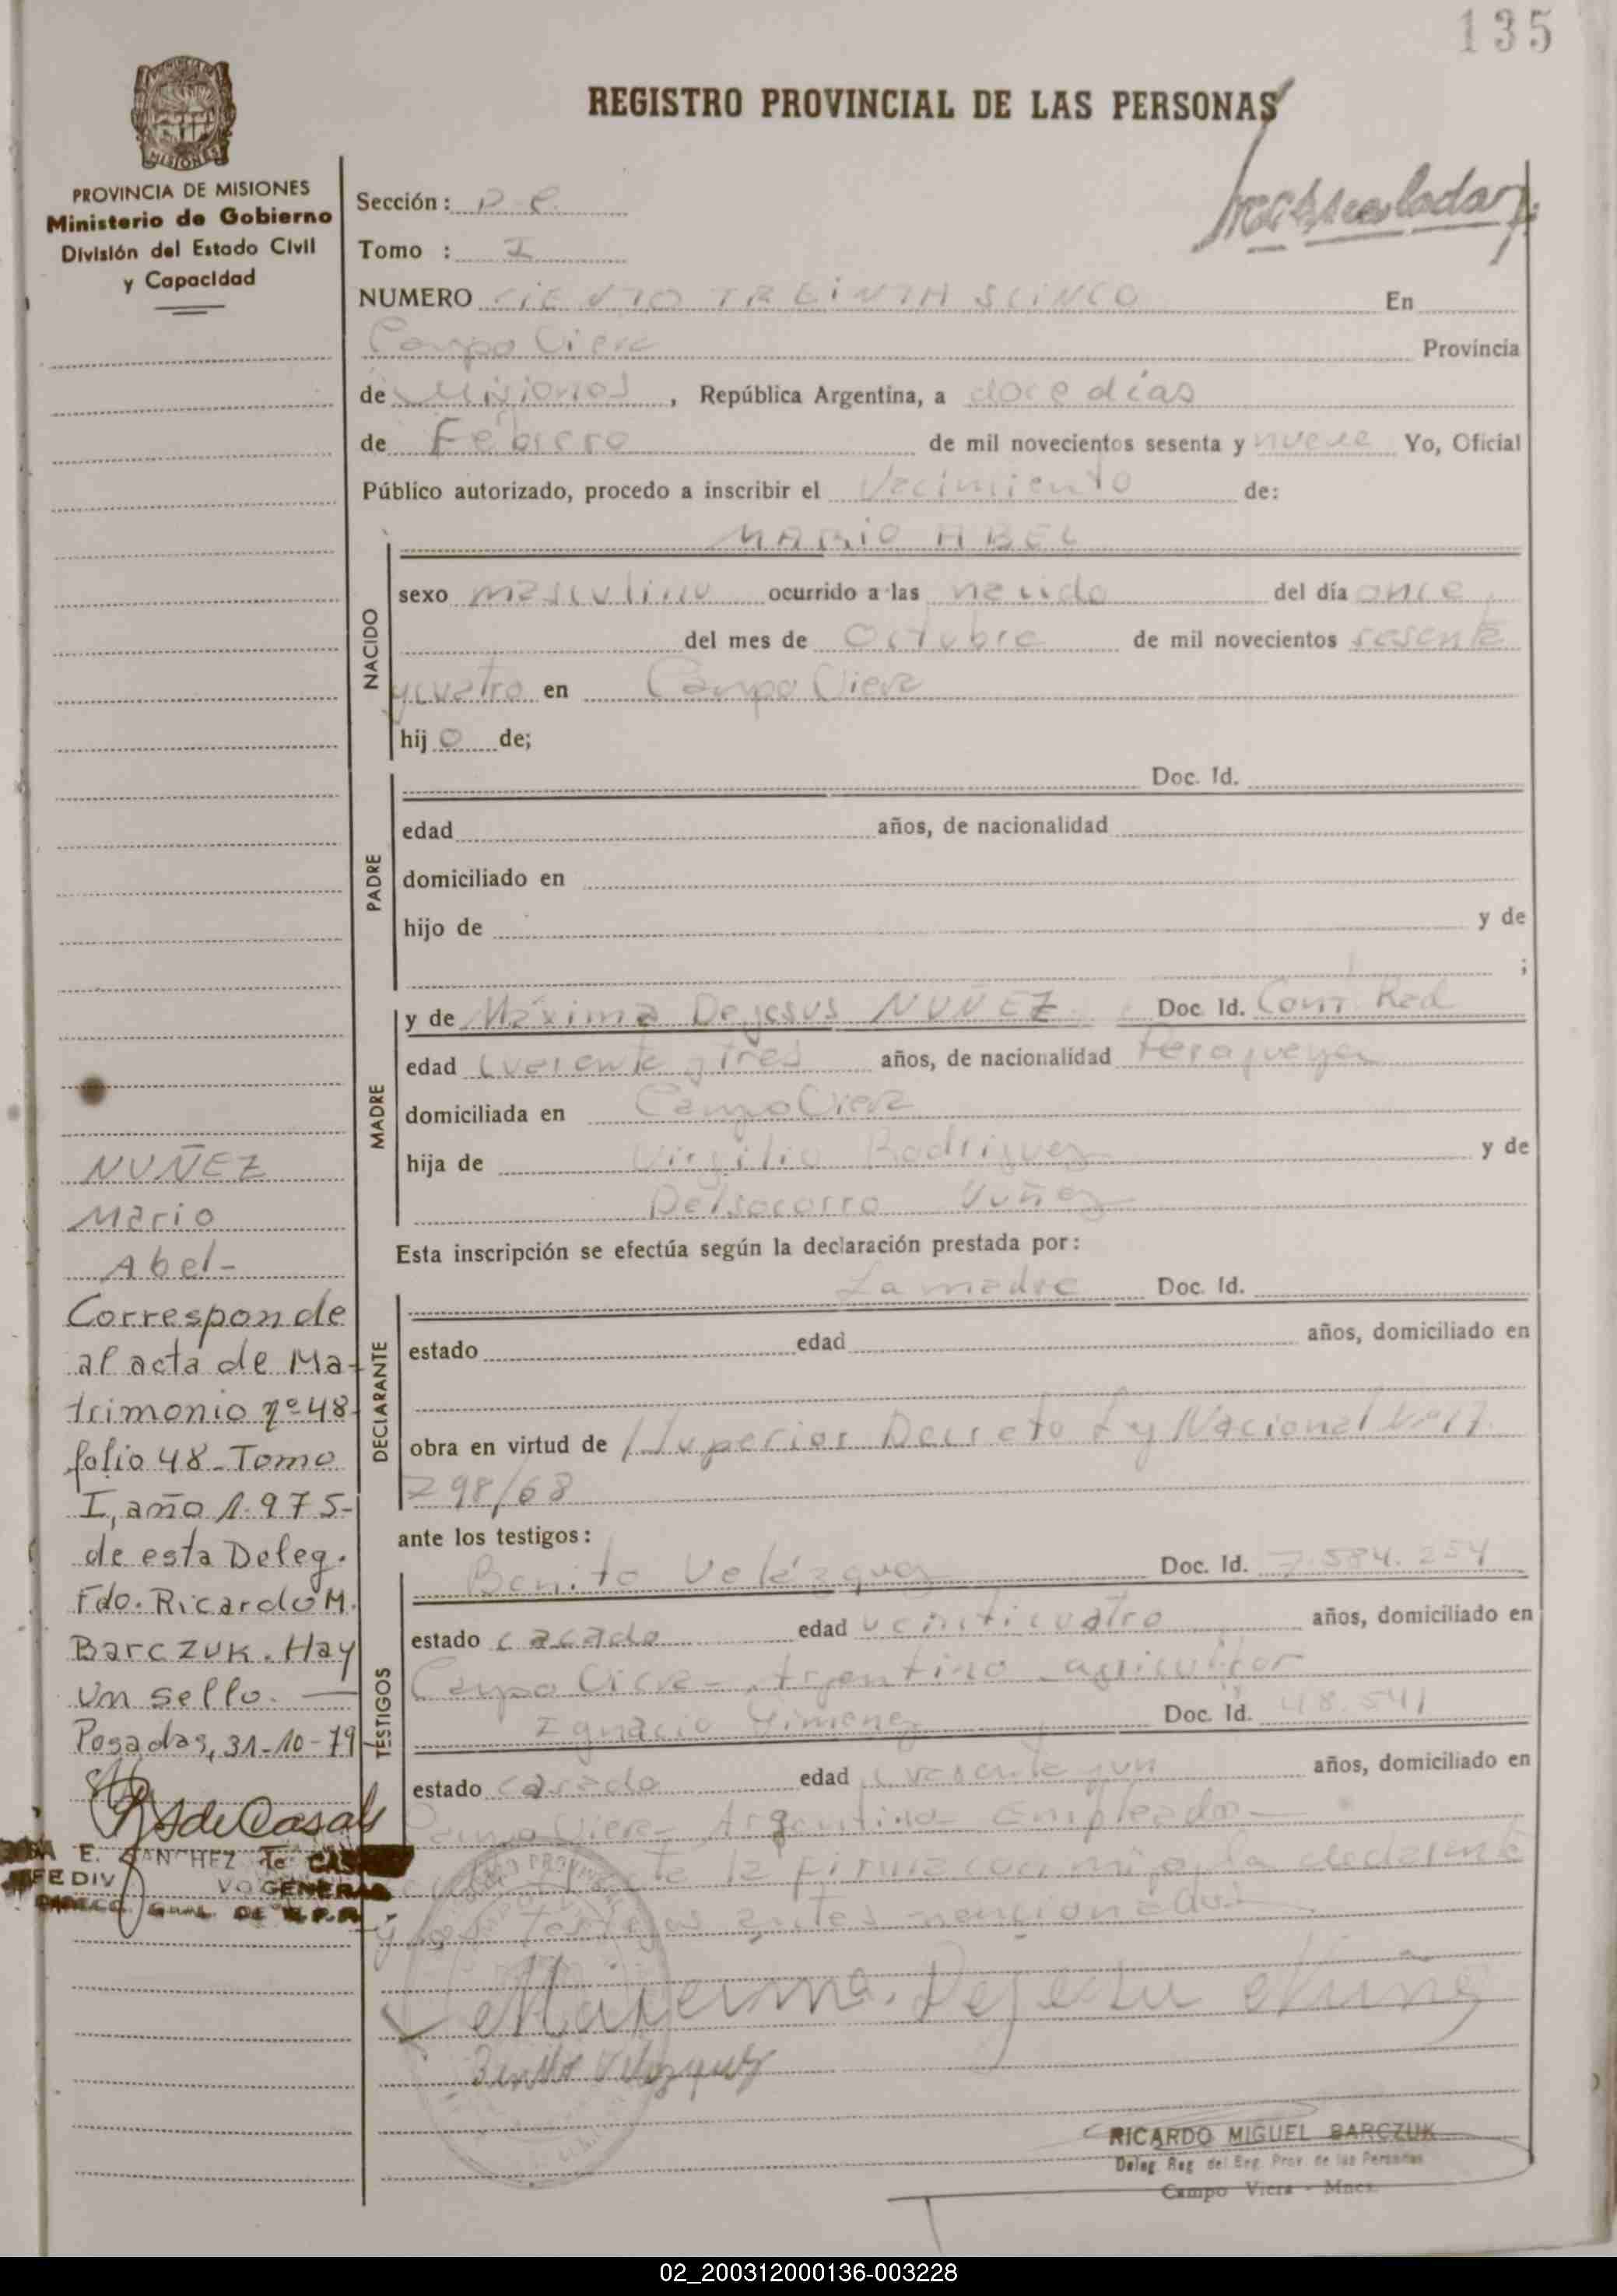 135
REGISTRO PROVINCIAL DE LAS PERSONAS
MISIONES
PROVINCIA DE MISIONES
Ministerio de Gobierno
División del Estado Civil
y Capacidad
Sección: D C
Tomo : I
NUMERO CIENTO TREINTA SCINCO En
Campo Viera Provincia
de Misiones, República Argentina, a doce días
de Febrero de mil novecientos sesenta y nueve Yo, Oficial
Público autorizado, procedo a inscribir el Nacimiento de:
NACIDO
MARIO ABEL
sexo masculino ocurrido a las nacido del día once
del mes de Octubre de mil novecientos sesenta
y cuatro en Campo Viera
hij o de;
PADRE
Doc. Id.
edad años, de nacionalidad
domiciliado en
hijo de y de
;
MADRE
y de Máxima Dejesus NUÑEZ Doc. Id. Cont. Red
edad cuarenta y tres años, de nacionalidad Paraguaya
domiciliada en Campo Viera
hija de Virgilio Rodriguez y de
Delsocorro Nuñez
Esta inscripción se efectúa según la declaración prestada por:
DECLARANTE
La madre Doc. Id.
estado edad años, domiciliado en
obra en virtud de Superior Decreto Ley Nacional
298/68
ante los testigos:
TESTIGOS
Benito Velázquez Doc. Id. 7.584.254
estado casado edad veinticuatro años, domiciliado en
Campo Viera - Argentino agricultor
Ignacio Gimenez Doc. Id. 48.541
estado casado edad cuarenta y un años, domiciliado en
Campo Viera - Argentino Empleado
la firma con migo la declarante
y los testigos antes mencionados
Maxima Dejesu Nuñez
Benito Velazquez
RICARDO MIGUEL BARCZUK
Deleg. Reg. del Reg. Prov. de las Personas
Campo Viera - Mnes.
NUÑEZ
Mario
Abel-
Corresponde
al acta de Ma-
trimonio nº 48
folio 48 - Tomo
I, año 1.975-
de esta Deleg.
Fdo. Ricardo M.
Barczuk. Hay
un sello. —
Posadas, 31-10-79
E. SANCHEZ de CASALS
02_200312000136-003228